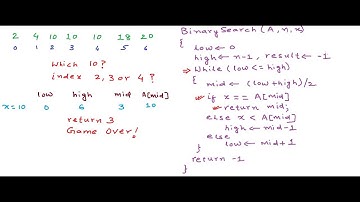 2 4 10 10 10 18 20
0 1 2 3 4 5 6
Which 10?
index 2, 3 or 4?
low high mid A[mid]
x=10 0 6 3 10
return 3
Game Over!
BinarySearch (A,n,x)
{
low ← 0
high ← n-1, result ← -1
While (low <= high)
{ mid ← (low+high)/2
if x == A[mid]
return mid;
else x < A[mid]
high ← mid-1
else
low ← mid+1
}
return -1
}